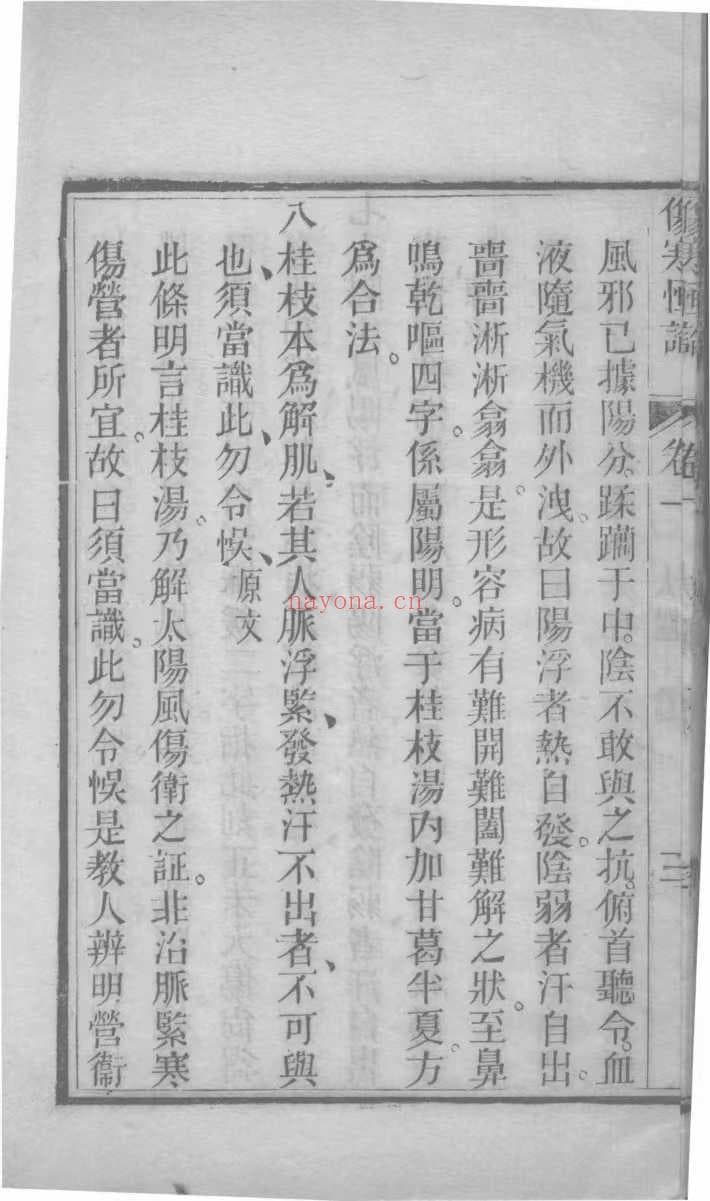 傷寒恆論 卷一 三
風邪已據陽分。蹂躪于中。陰不敢與之抗。俯首聽令。血
液隨氣機而外洩。故曰陽浮者熱自發。陰弱者汗自出。
嗇嗇淅淅翕翕。是形容病有難開難闔難解之狀。至鼻
鳴乾嘔四字。係屬陽明。當于桂枝湯內加甘葛半夏。方
爲合法。
八桂枝本爲解肌、若其人脈浮緊、發熱汗不出者、不可與
也、須當識此、勿令悞、原文
此條明言桂枝湯。乃解太陽風傷衛之証。非治脈緊寒
傷營者所宜。故曰須當識。此勿令悞是教人辨明營衛
nayona.cn